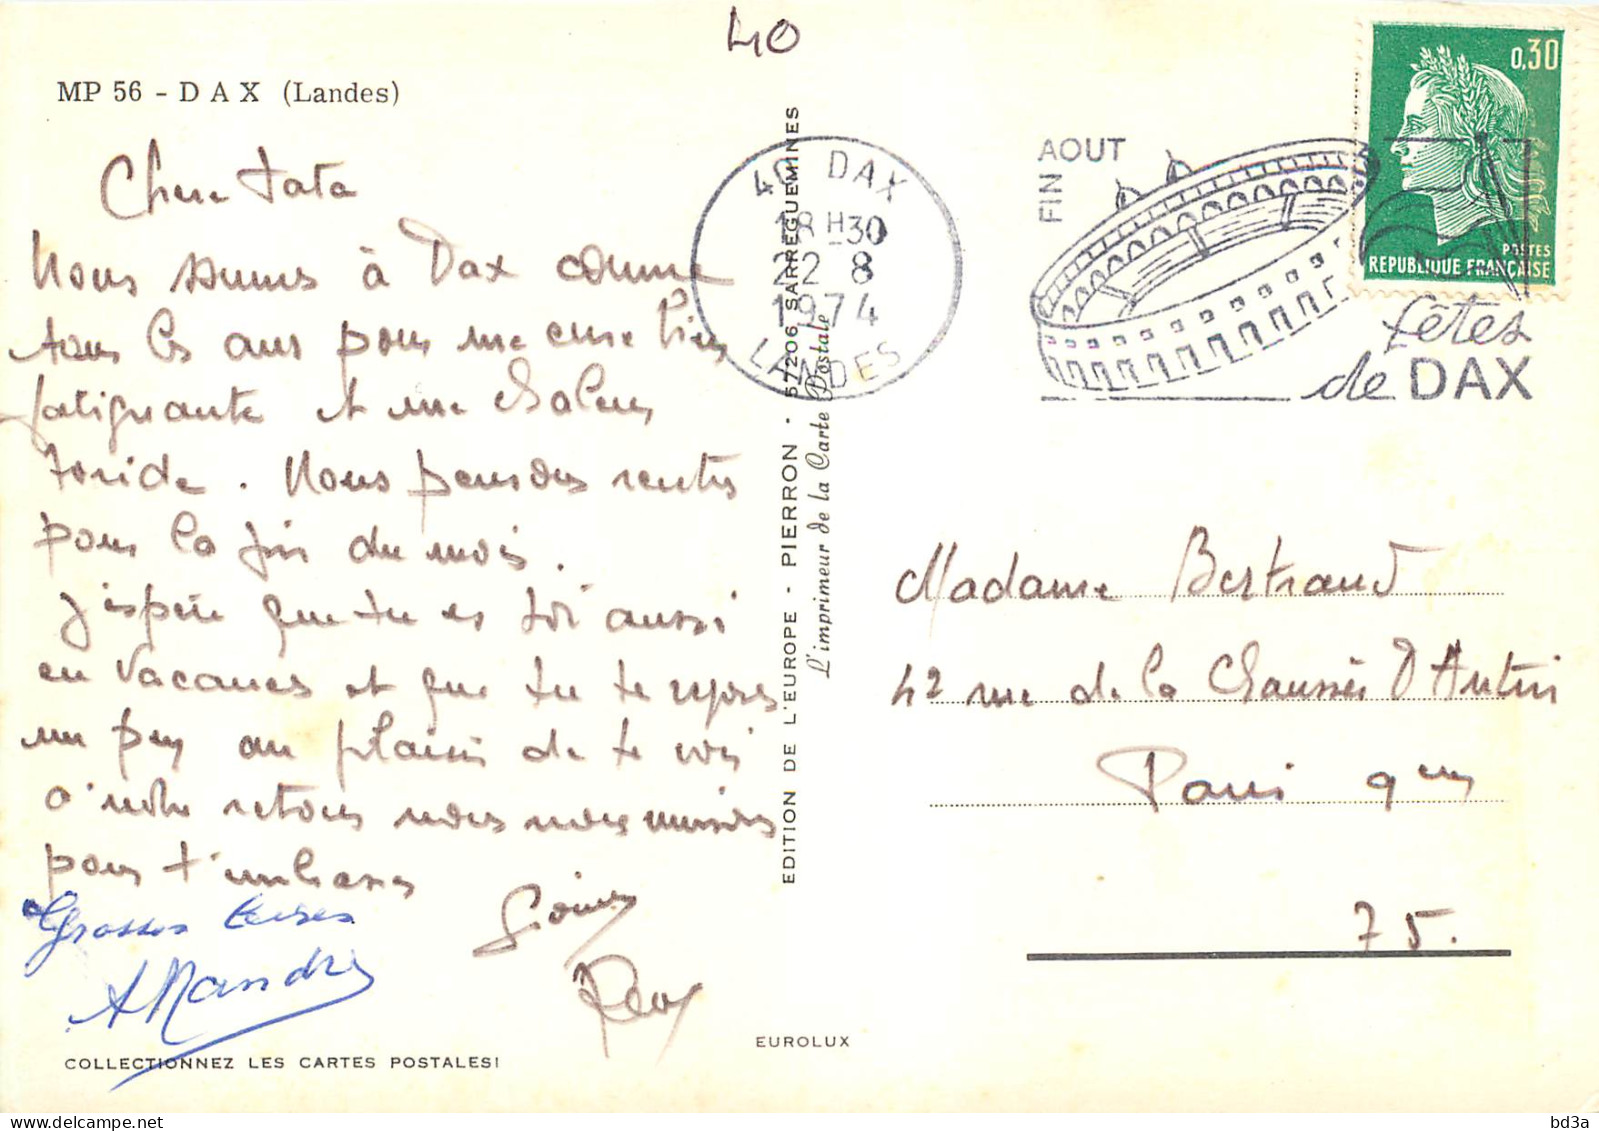 40
MP 56 - DAX (Landes)
Chere Tata
Nous sommes à Dax comme
tous les ans pour une cure bien
fatigante et une chaleur
torride. Nous pensons rentrer
pour la fin du mois.
J'espère que tu es toi aussi
en vacances et que tu te reposes
un peu au plaisir de te voir
a notre retour nous nous unissons
pour t'embrasser
Grosses bises
COLLECTIONNEZ LES CARTES POSTALES!
EDITION DE L'EUROPE - PIERRON - 57206 SARREGUEMINES
L'imprimeur de la Carte Postale
EUROLUX
40 DAX
18 H 30
22 8
1974
LANDES
FIN AOUT
fêtes
de DAX
0,30
POSTES
REPUBLIQUE FRANÇAISE
Madame Bertrand
42 rue de la Chaussée d'Antin
Paris 9em
75.
bd3a